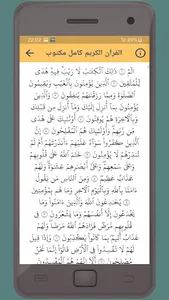 22:02
69%
القران الكريم كامل مكتوب
الٓمٓ ۝ ذَٰلِكَ ٱلْكِتَٰبُ لَا رَيْبَ فِيهِ هُدًى
لِّلْمُتَّقِينَ ۝ ٱلَّذِينَ يُؤْمِنُونَ بِٱلْغَيْبِ وَيُقِيمُونَ
ٱلصَّلَوٰةَ وَمِمَّا رَزَقْنَٰهُمْ يُنفِقُونَ ۝ وَٱلَّذِينَ
يُؤْمِنُونَ بِمَآ أُنزِلَ إِلَيْكَ وَمَآ أُنزِلَ مِن قَبْلِكَ
وَبِٱلْءَاخِرَةِ هُمْ يُوقِنُونَ ۝ أُو۟لَٰٓئِكَ عَلَىٰ هُدًى
مِّن رَّبِّهِمْ وَأُو۟لَٰٓئِكَ هُمُ ٱلْمُفْلِحُونَ ۝ إِنَّ ٱلَّذِينَ
كَفَرُوا۟ سَوَآءٌ عَلَيْهِمْ ءَأَنذَرْتَهُمْ أَمْ لَمْ تُنذِرْهُمْ
لَا يُؤْمِنُونَ ۝ خَتَمَ ٱللَّهُ عَلَىٰ قُلُوبِهِمْ
وَعَلَىٰ سَمْعِهِمْ وَعَلَىٰٓ أَبْصَٰرِهِمْ غِشَٰوَةٌ وَلَهُمْ
عَذَابٌ عَظِيمٌ ۝ وَمِنَ ٱلنَّاسِ مَن يَقُولُ
ءَامَنَّا بِٱللَّهِ وَبِٱلْيَوْمِ ٱلْءَاخِرِ وَمَا هُم بِمُؤْمِنِينَ
۝ يُخَٰدِعُونَ ٱللَّهَ وَٱلَّذِينَ ءَامَنُوا۟ وَمَا
يَخْدَعُونَ إِلَّآ أَنفُسَهُمْ وَمَا يَشْعُرُونَ ۝ فِى
قُلُوبِهِم مَّرَضٌ فَزَادَهُمُ ٱللَّهُ مَرَضًا وَلَهُمْ
عَذَابٌ أَلِيمٌۢ بِمَا كَانُوا۟ يَكْذِبُونَ ۝ وَإِذَا